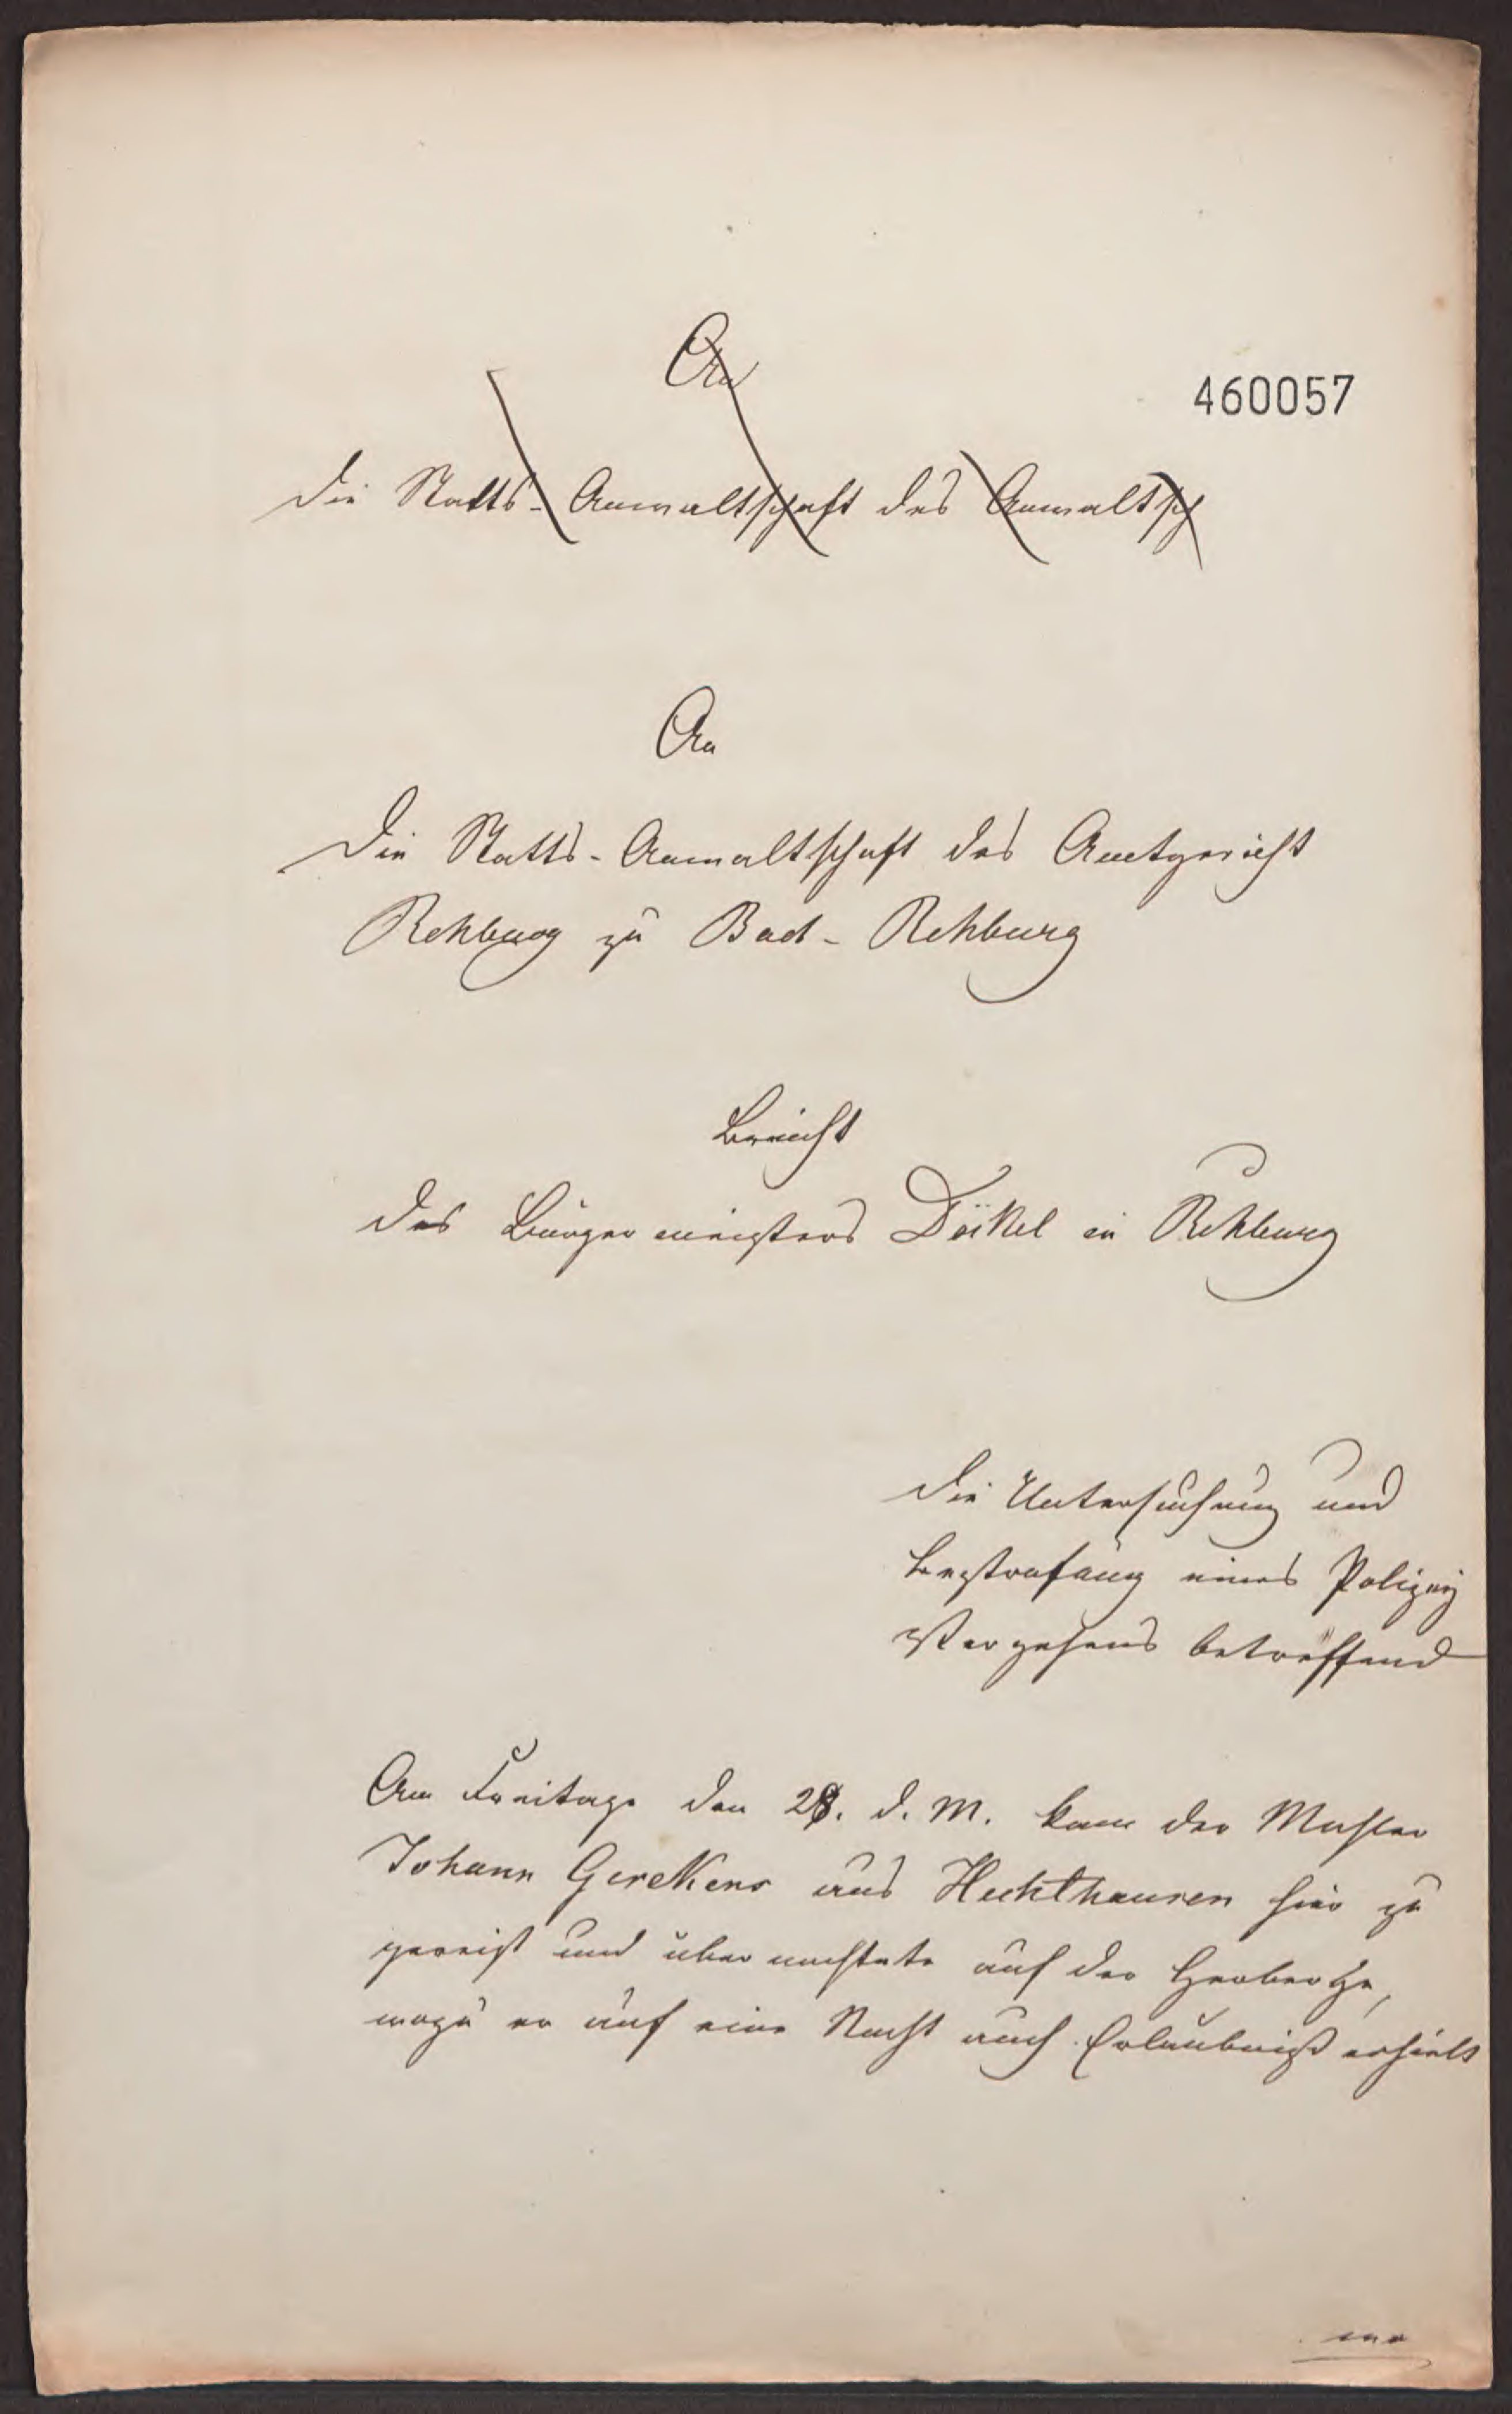 An
460057
die Statts-Anwaltschaft des Anwaltsch
An
Die Statts-Anwaltschaft des Amtgericht
Rehburg zu Bad-Rehburg
Bericht
des Bürgermeisters Däkel in Rehburg
die Untersuchung und
Bestrafung eines Polizey
Vergehens betreffend
Am Freitage den 28. d. M. kam der
Johann Gerekens aus Hechthausen hier zu
gereist und übernachtete auf der Herberge,
wozu er auf eine Nacht auch Erlaubniß erhielt